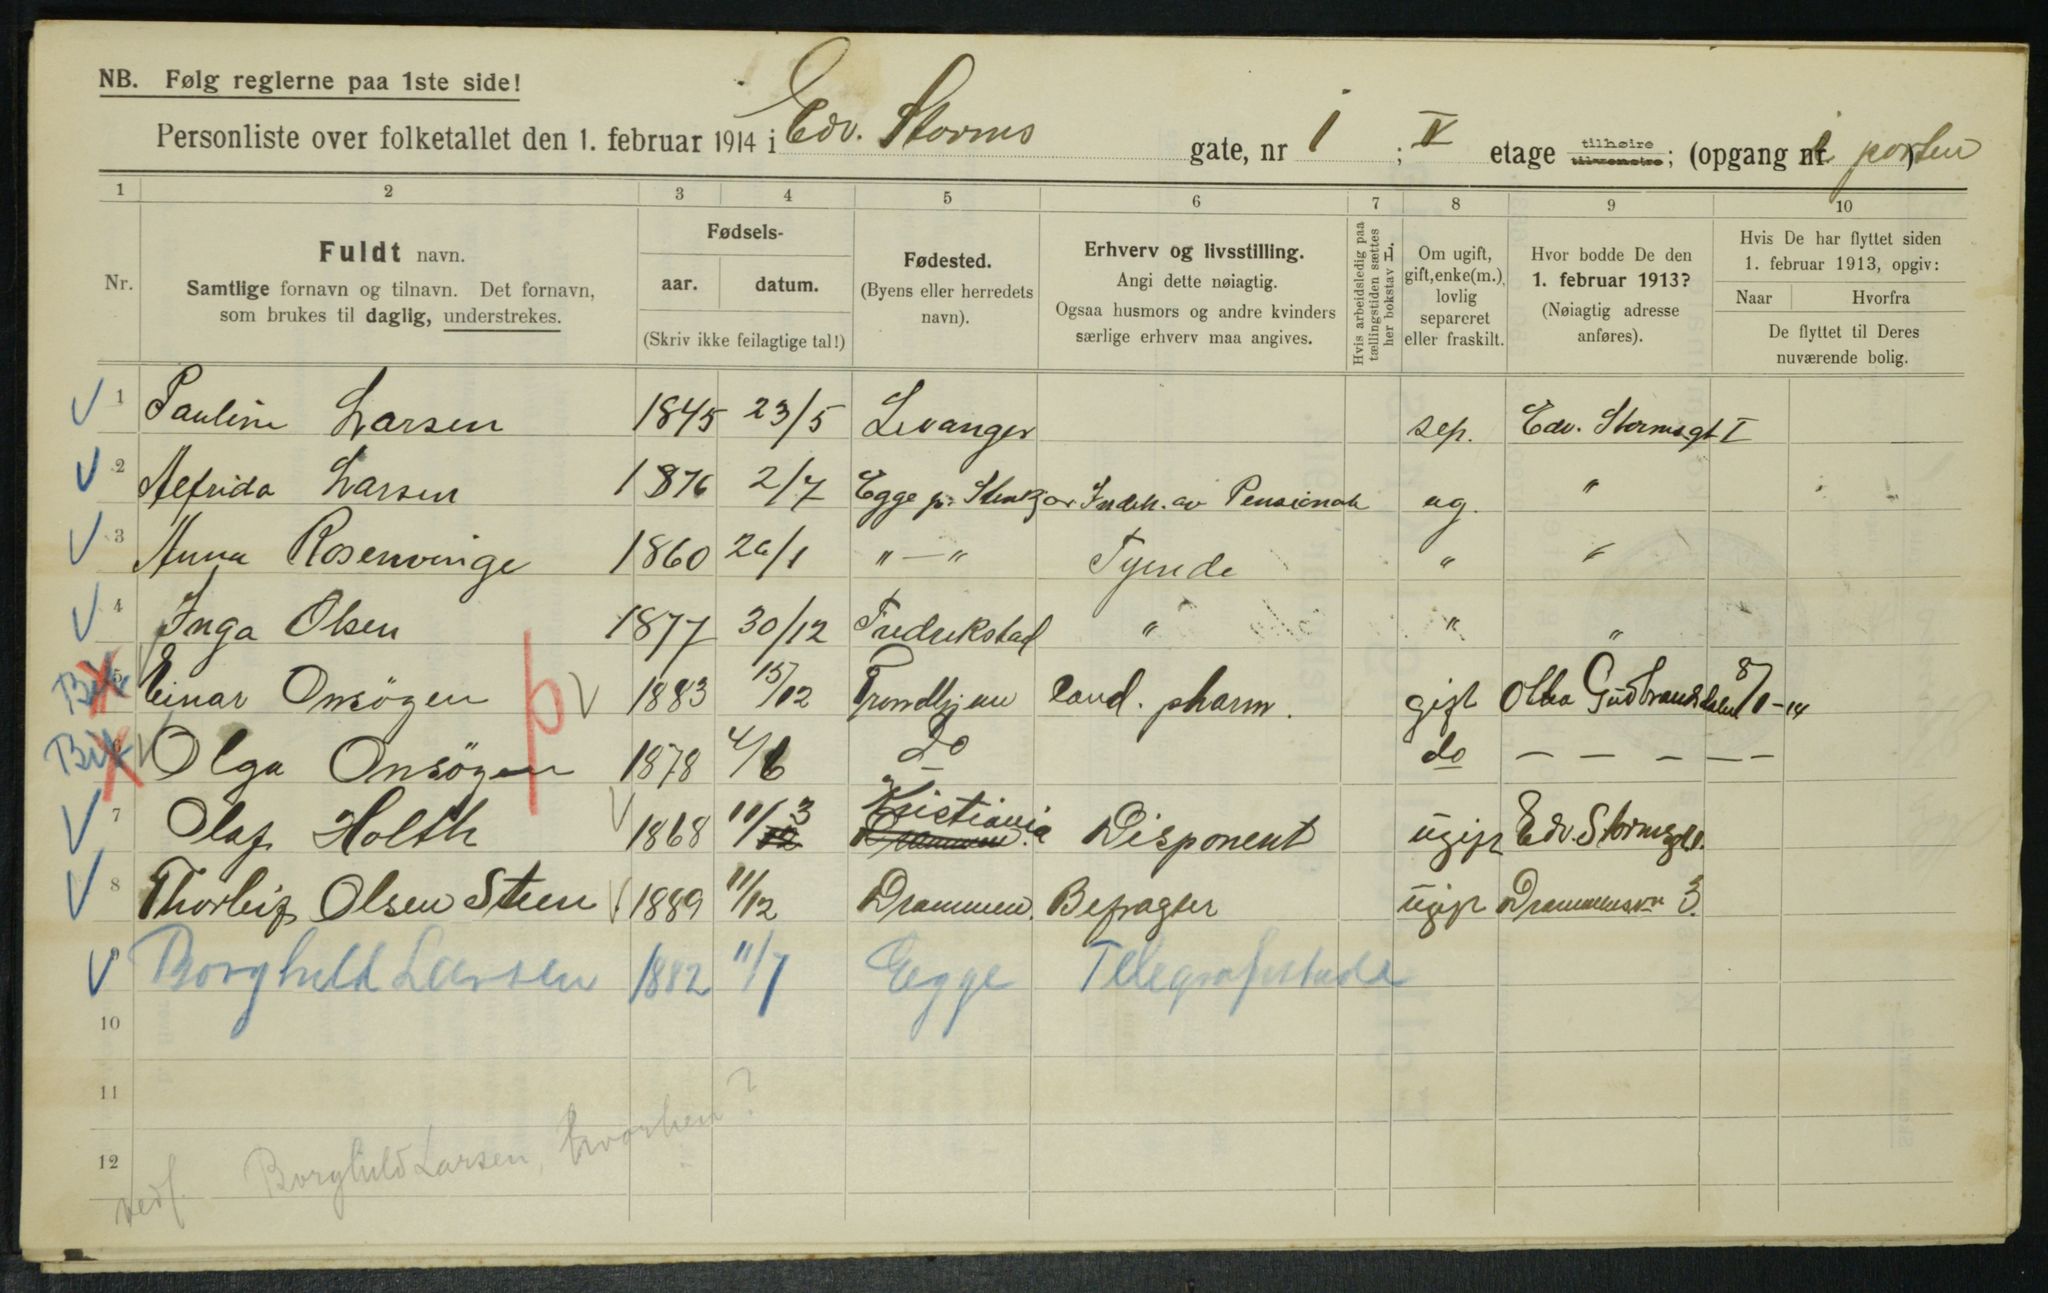 NB. Følg reglerne paa 1ste side!
Personliste over folketallet den 1. februar 1914 i Edv. Storms gate, nr 1 ; V etage tilhøire tilvenstre; (opgang nr i porten)
1 2 3 4 5 6 7 8 9 10
Nr.
Fuldt navn.
Samtlige fornavn og tilnavn. Det fornavn,
som brukes til daglig, understrekes.
Fødsels-
aar. datum.
(Skriv ikke feilagtige tal!)
Fødested.
(Byens eller herredets
navn).
Erhverv og livsstilling.
Angi dette nøiagtig.
Ogsaa husmors og andre kvinders
særlige erhverv maa angives.
Hvis arbeidsledig paa
tællingstiden sættes
her bokstav L.
Om ugift,
gift, enke(m.),
lovlig
separeret
eller fraskilt.
Hvor bodde De den
1. februar 1913?
(Nøiagtig adresse
anføres).
Hvis De har flyttet siden
1. februar 1913, opgiv:
Naar Hvorfra
De flyttet til Deres
nuværende bolig.
1 Pauline Larsen 1845 23/5 Levanger sep. Edv. Stormsgt I
2 Alfrida Larsen 1876 2/7 Egge pr. Stenkjær Indeh. av Pensionat ug. "
3 Anna Rosenvinge 1860 26/1 " — " Tjende " "
4 Inga Olsen 1877 30/12 Fredrikstad " " "
5 Einar Onsögen 1883 15/12 Trondhjem Cand. pharm. gift Otta Gudbrandsdalen 8/1-14
6 Olga Onsögen 1878 4/6 do do — — — — —
7 Olaf Holth 1868 11/3 Kristiania Disponent ugift Edv. Stormsgt 1.
8 Thorleif Olsen Steen 1889 11/12 Drammen. Befragter ugift Drammensvn 3.
9 Borghild Larsen 1882 11/7 Egge Telegrafistinde
10
11
12
vedf. Borghild Larsen, hvorhen?